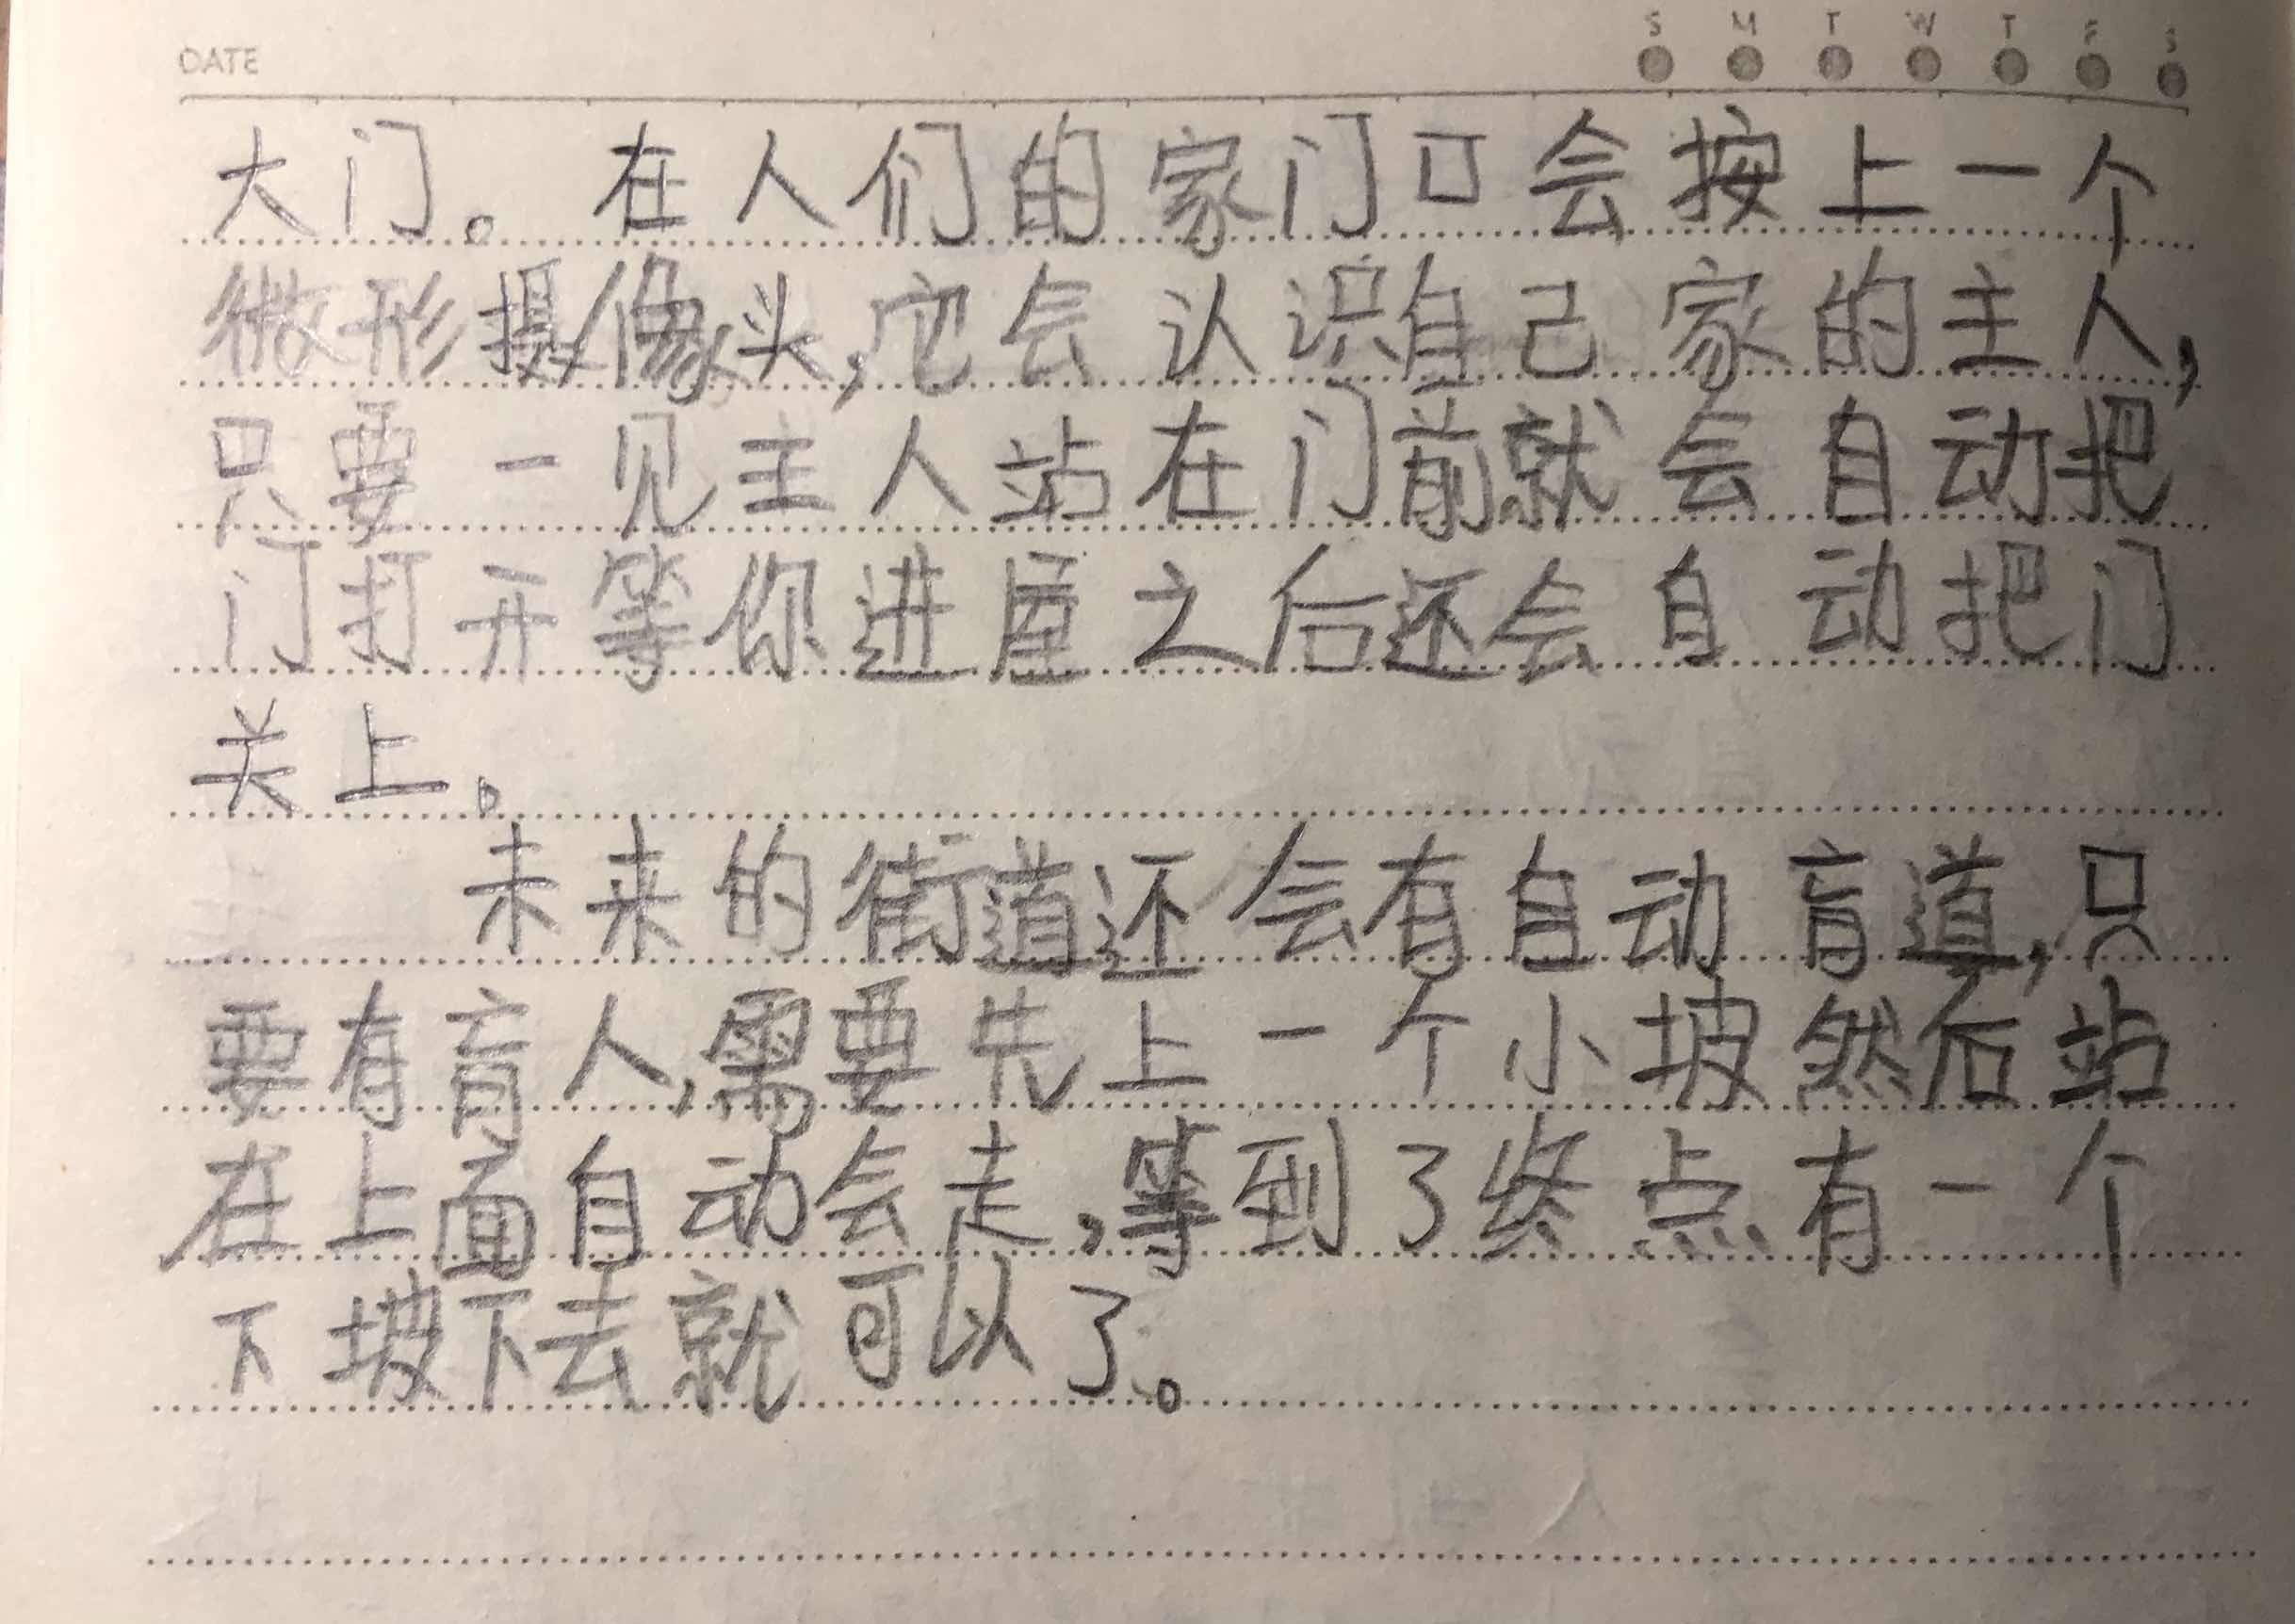 DATE S M T W T F S
大门。在人们的家门口会按上一个
微形摄像头,它会认识自己家的主人,
只要一见主人站在门前就会自动把
门打开等你进屋之后还会自动把门
关上。
未来的街道还会有自动盲道,只
要有盲人,需要先上一个小坡然后站
在上面自动会走,等到了终点有一个
下坡下去就可以了。